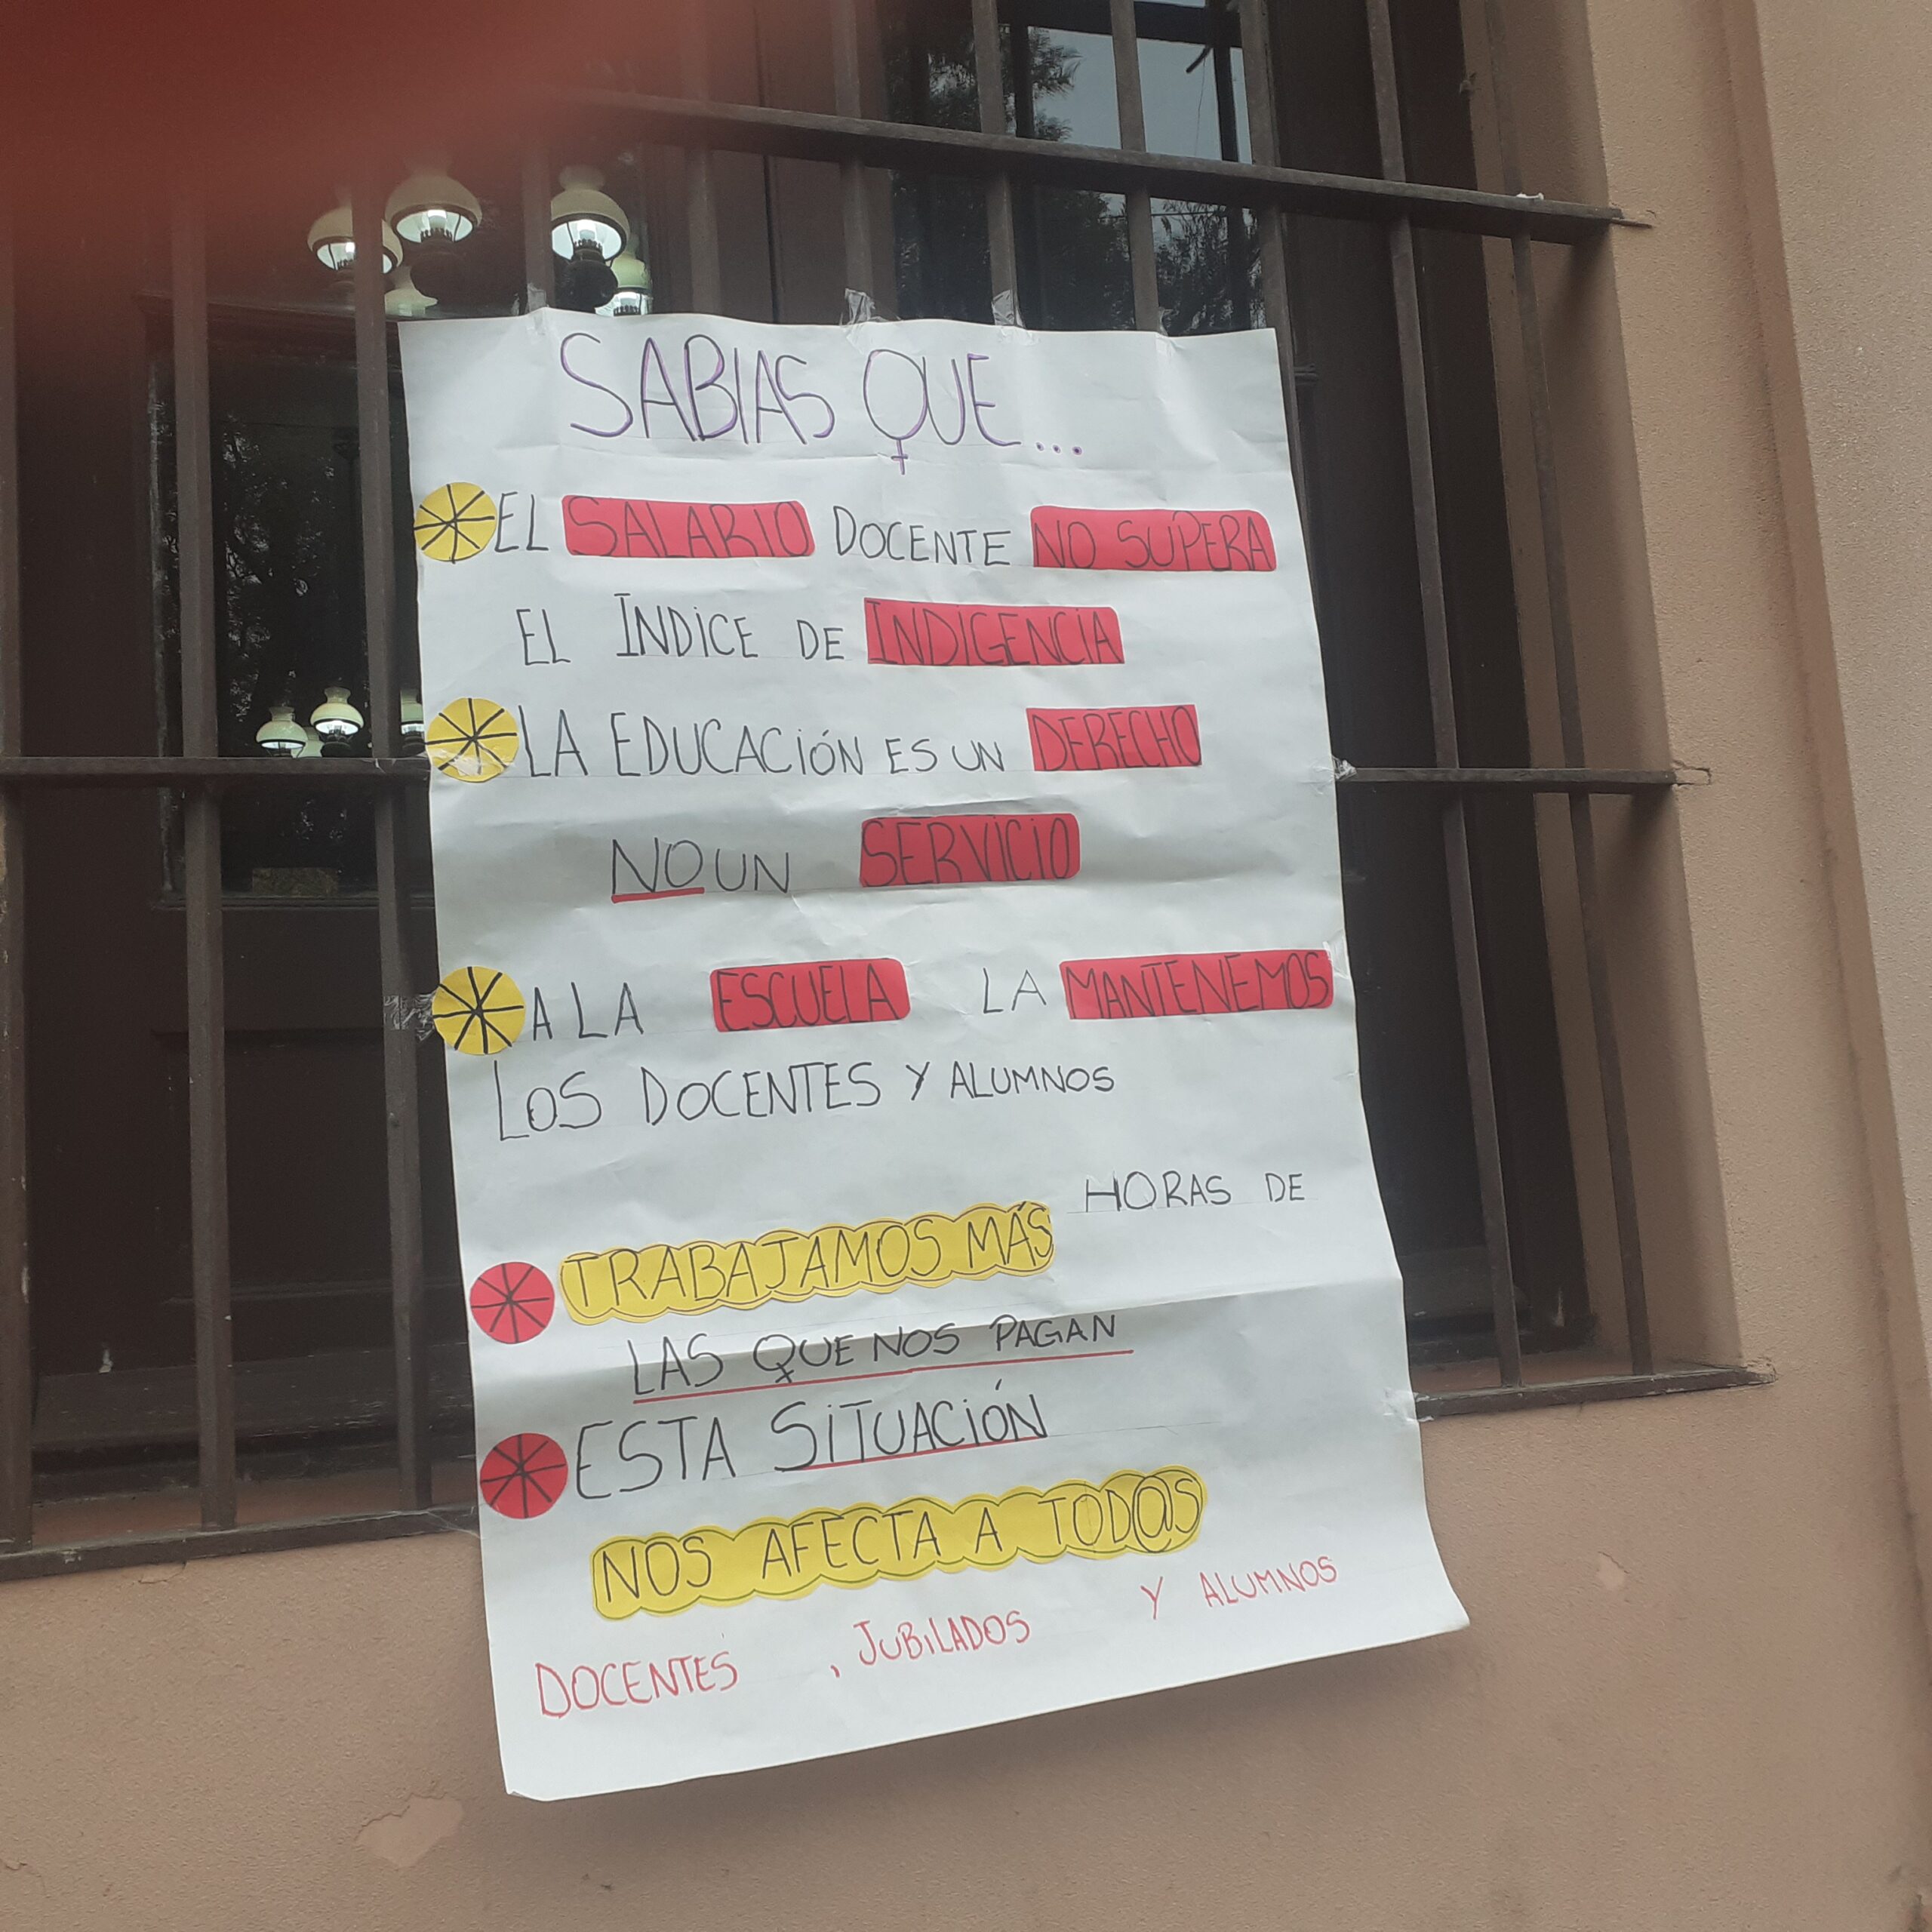 SABIAS QUE...
EL SALARIO DOCENTE NO SUPERA
EL ÍNDICE DE INDIGENCIA
LA EDUCACIÓN ES UN DERECHO
NO UN SERVICIO
A LA ESCUELA LA MANTENEMOS
LOS DOCENTES Y ALUMNOS
TRABAJAMOS MÁS HORAS DE
LAS QUE NOS PAGAN
ESTA SITUACIÓN
NOS AFECTA A TOD@S
DOCENTES , JUBILADOS Y ALUMNOS